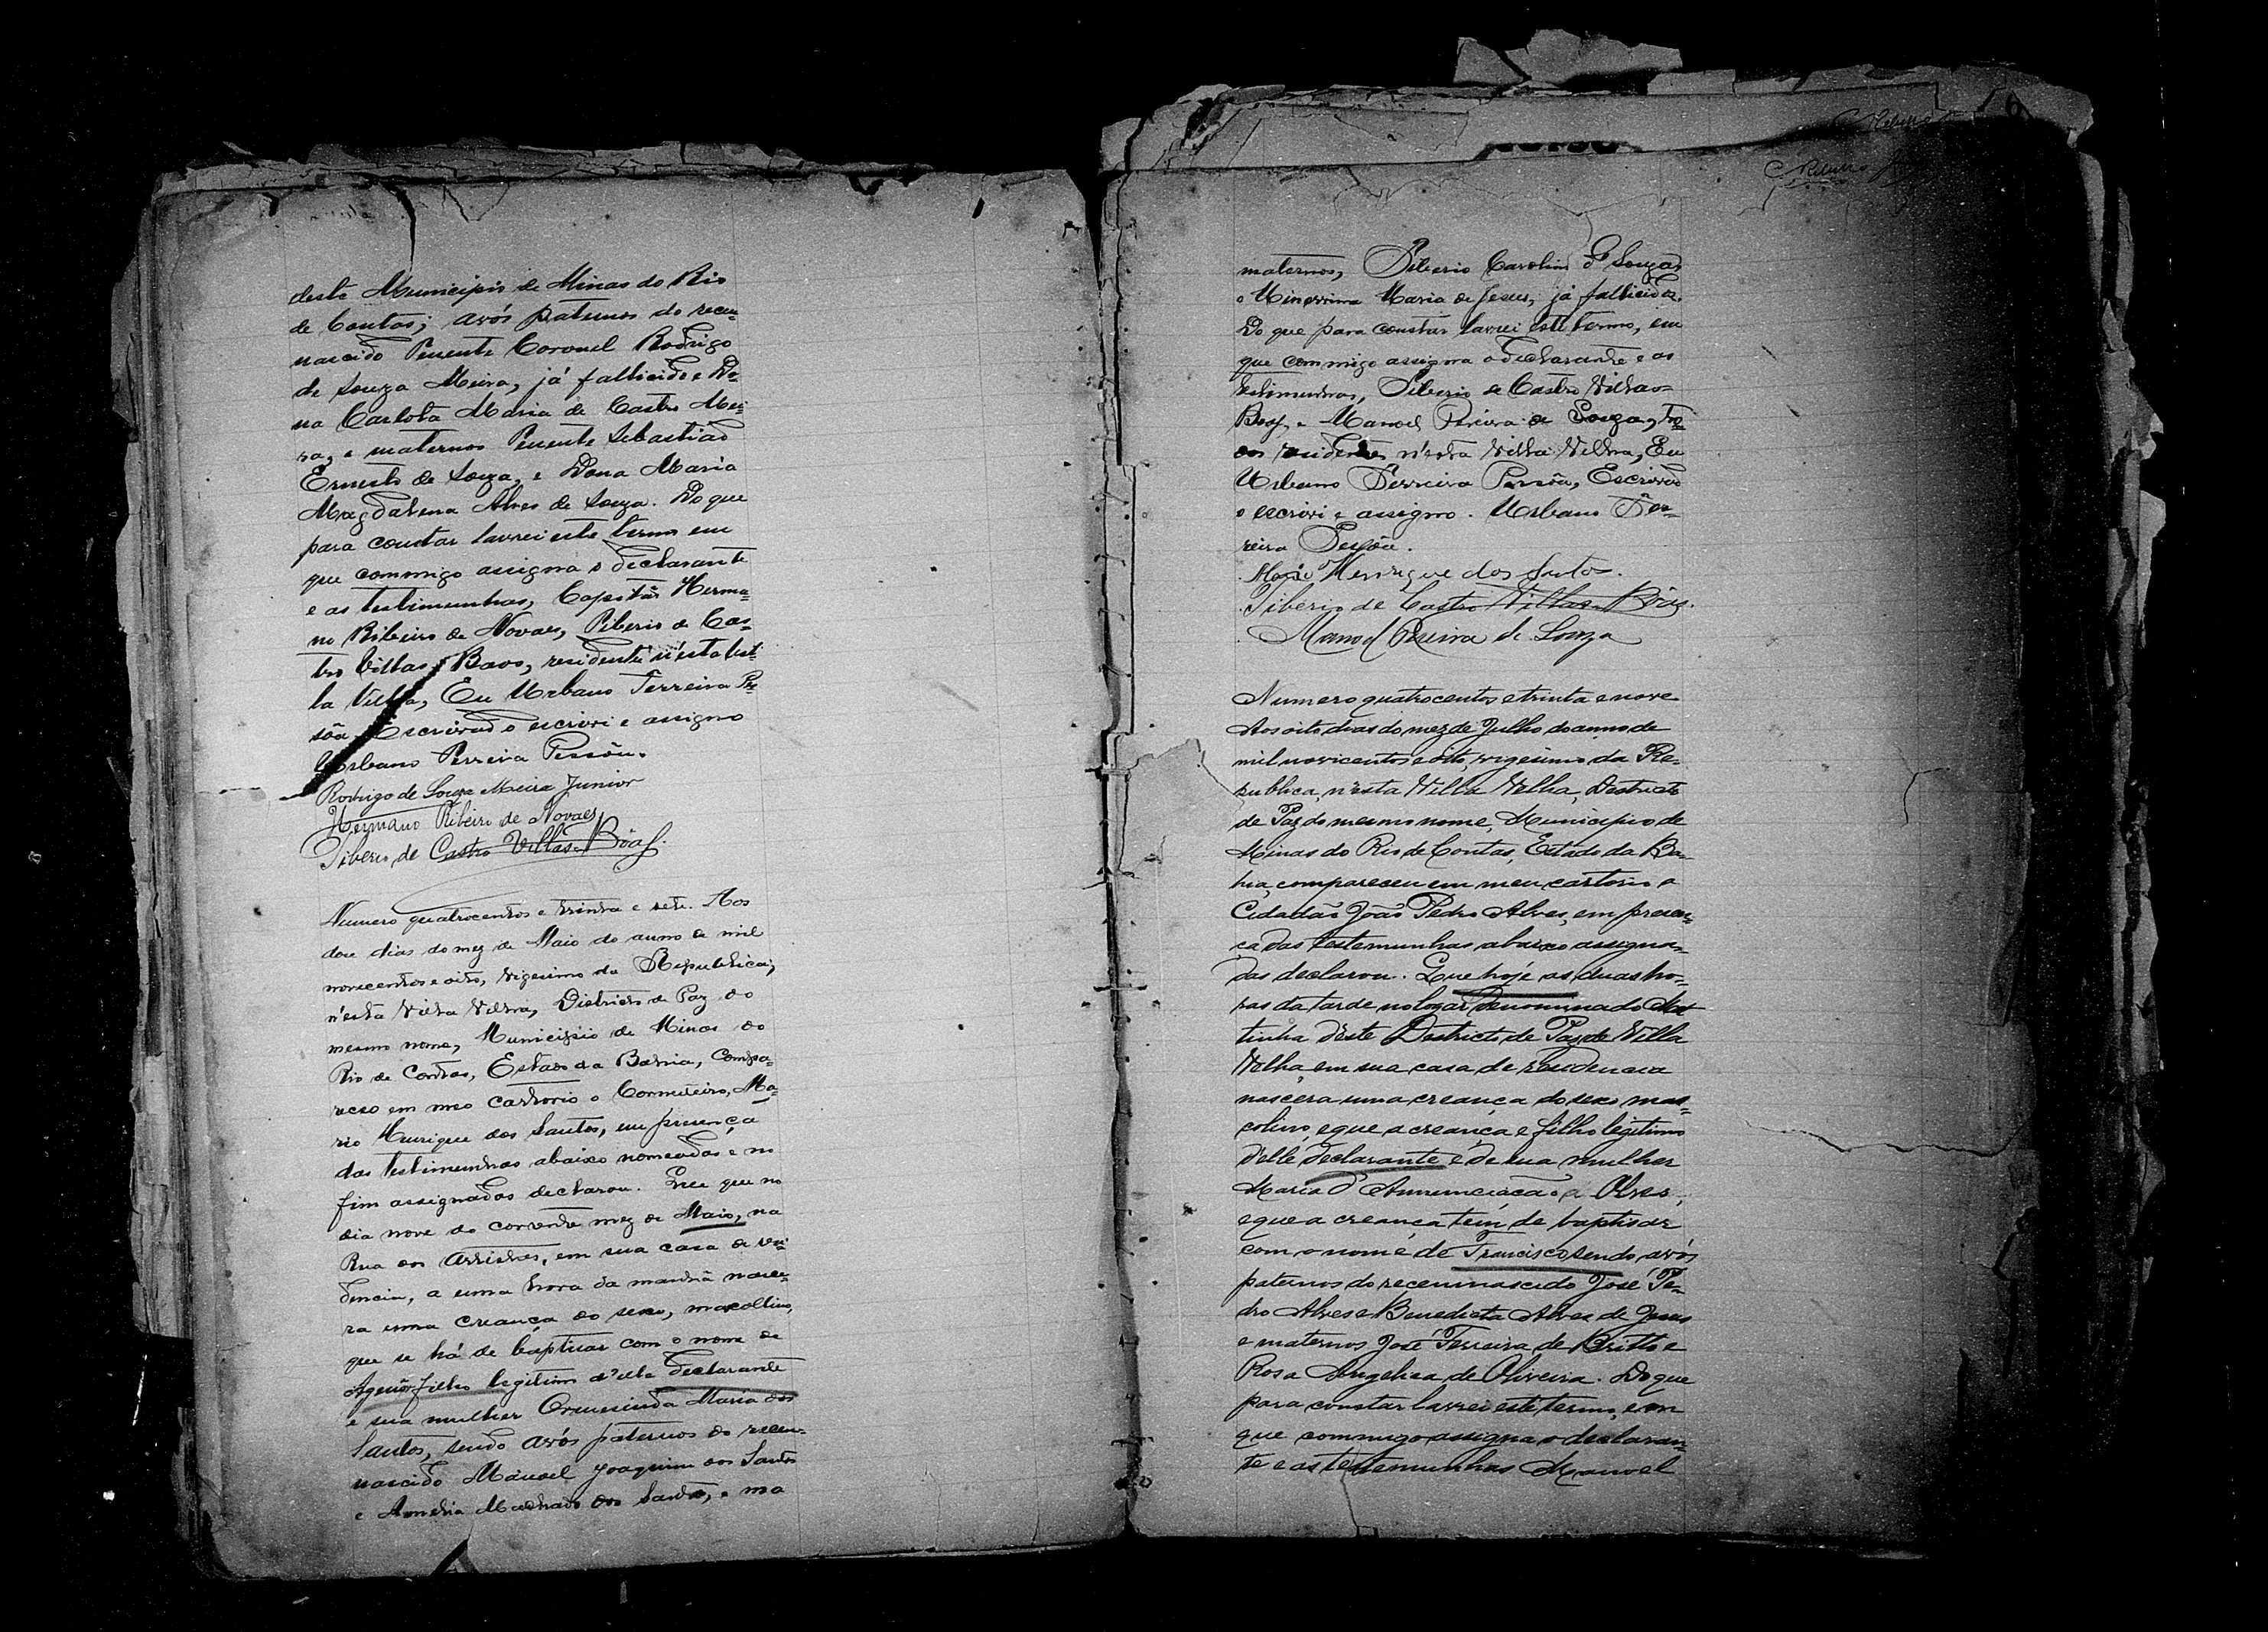 deste Municipio de Minas do Rio
de Contas; avós paternos do recem
nascido Tenente Coronel Rodrigo
de Souza Meira, já fallicido e Do-
na Carlota Maria de Castro Mei-
ra, e maternos Tenente Sebastião
Ernesto de Souza, e Dona Maria
Magdalena Alves de Souza. Do que
para constar lavrei este termo em
que commigo assigna o declarante
e as testimunhas, Capitão Herma-
no Ribeiro de Novaes, Tiberio de Cas-
tro Villas Boas, residente n'esta
la Villa, Eu Urbano Ferreira Pes-
sôa Escrivão o escrivi e assigno
Urbano Ferreira Pessôa.
Rodrigo de Souza Meira Junior
Hermano Ribeiro de Novaes
Tiberio de Castro Villas-Bôas.
Numero quatrocentos e trinta e sete. Aos
doze dias do mez de Maio do anno de mil
novecentos e oito, vigesimo da Republica,
n'esta Villa Velha, Districto de Paz do
mesmo nome, Municipio de Minas do
Rio de Contas, Estado da Bahia, Compa-
receo em meo cartorio o Ma-
rio Henrique dos Santos, em presença
das testimunhas abaixo nomeadas e no
fim assignadas declarou. Que que no
dia nove do corrente mez de Maio, na
Rua dos em sua casa de resi-
dencia, a uma hora da manhã nasce-
ra uma creança do sexo, mascollino,
que se há de baptisar com o nome de
Agenôr filho legitimo d'elle declarante
e sua mulher Ormesinda Maria dos
Santos, sendo avós paternos do recem-
nascido Manoel Joaquim dos Santos
e Amelia Machado dos Santos, e ma
maternos, Tiberio Carolino de Souza
e Minervina Maria de Jesus, já fallicidos.
Do que para constar lavrei este termo, em
que commigo assigna o declarante e as
testimunhas, Tiberio de Castro Villas-
Boas, e Manoel Pereira de Souza, to-
dos residentes n'esta Villa Velha, Eu
Urbano Ferreira Pessôa, Escrivão
o escrivi e assigno. Urbano Fer-
reira Pessôa.
Mario Henrique dos Santos.
Tiberio de Castro Villas-Bôas.
Manoel Pereira de Souza
Numero quatrocentos e trinta e nove
Aos oito dias do mez de Julho do anno de
mil novicentos e oito, vigesimo da Re-
publica, n'esta Villa Velha, Destricto
de Paz do mesmo nome, Municipio de
Minas do Rio de Contas, Estado da Ba-
hia, compareceu em meu cartorio o
Cidadão João Pedro Alves, em presen-
ça das testemunhas abaixo assigna-
das declarou. Que hoje as duas ho-
ras da tarde no logar denominado Mat
tinha deste Destricto de Paz de Villa
Velha, em sua casa de residencia
nascera uma creança do sexo mas-
colino, e que a creança e filho legitimo
delle declarante e de sua mulher
Maria d'Annunciacão Alves,
e que a creança tem de baptisar
com o nome de Francisco sendo avós
paternos do recemnascido José Pe-
dro Alves e Benedicta Alves de Jesus
e maternos José Ferreira de Britto e
Rosa Angelica de Oliveira. Do que
para constar lavrei este termo, em
que commigo assigna o declaran-
te e as testemunhas Manoel